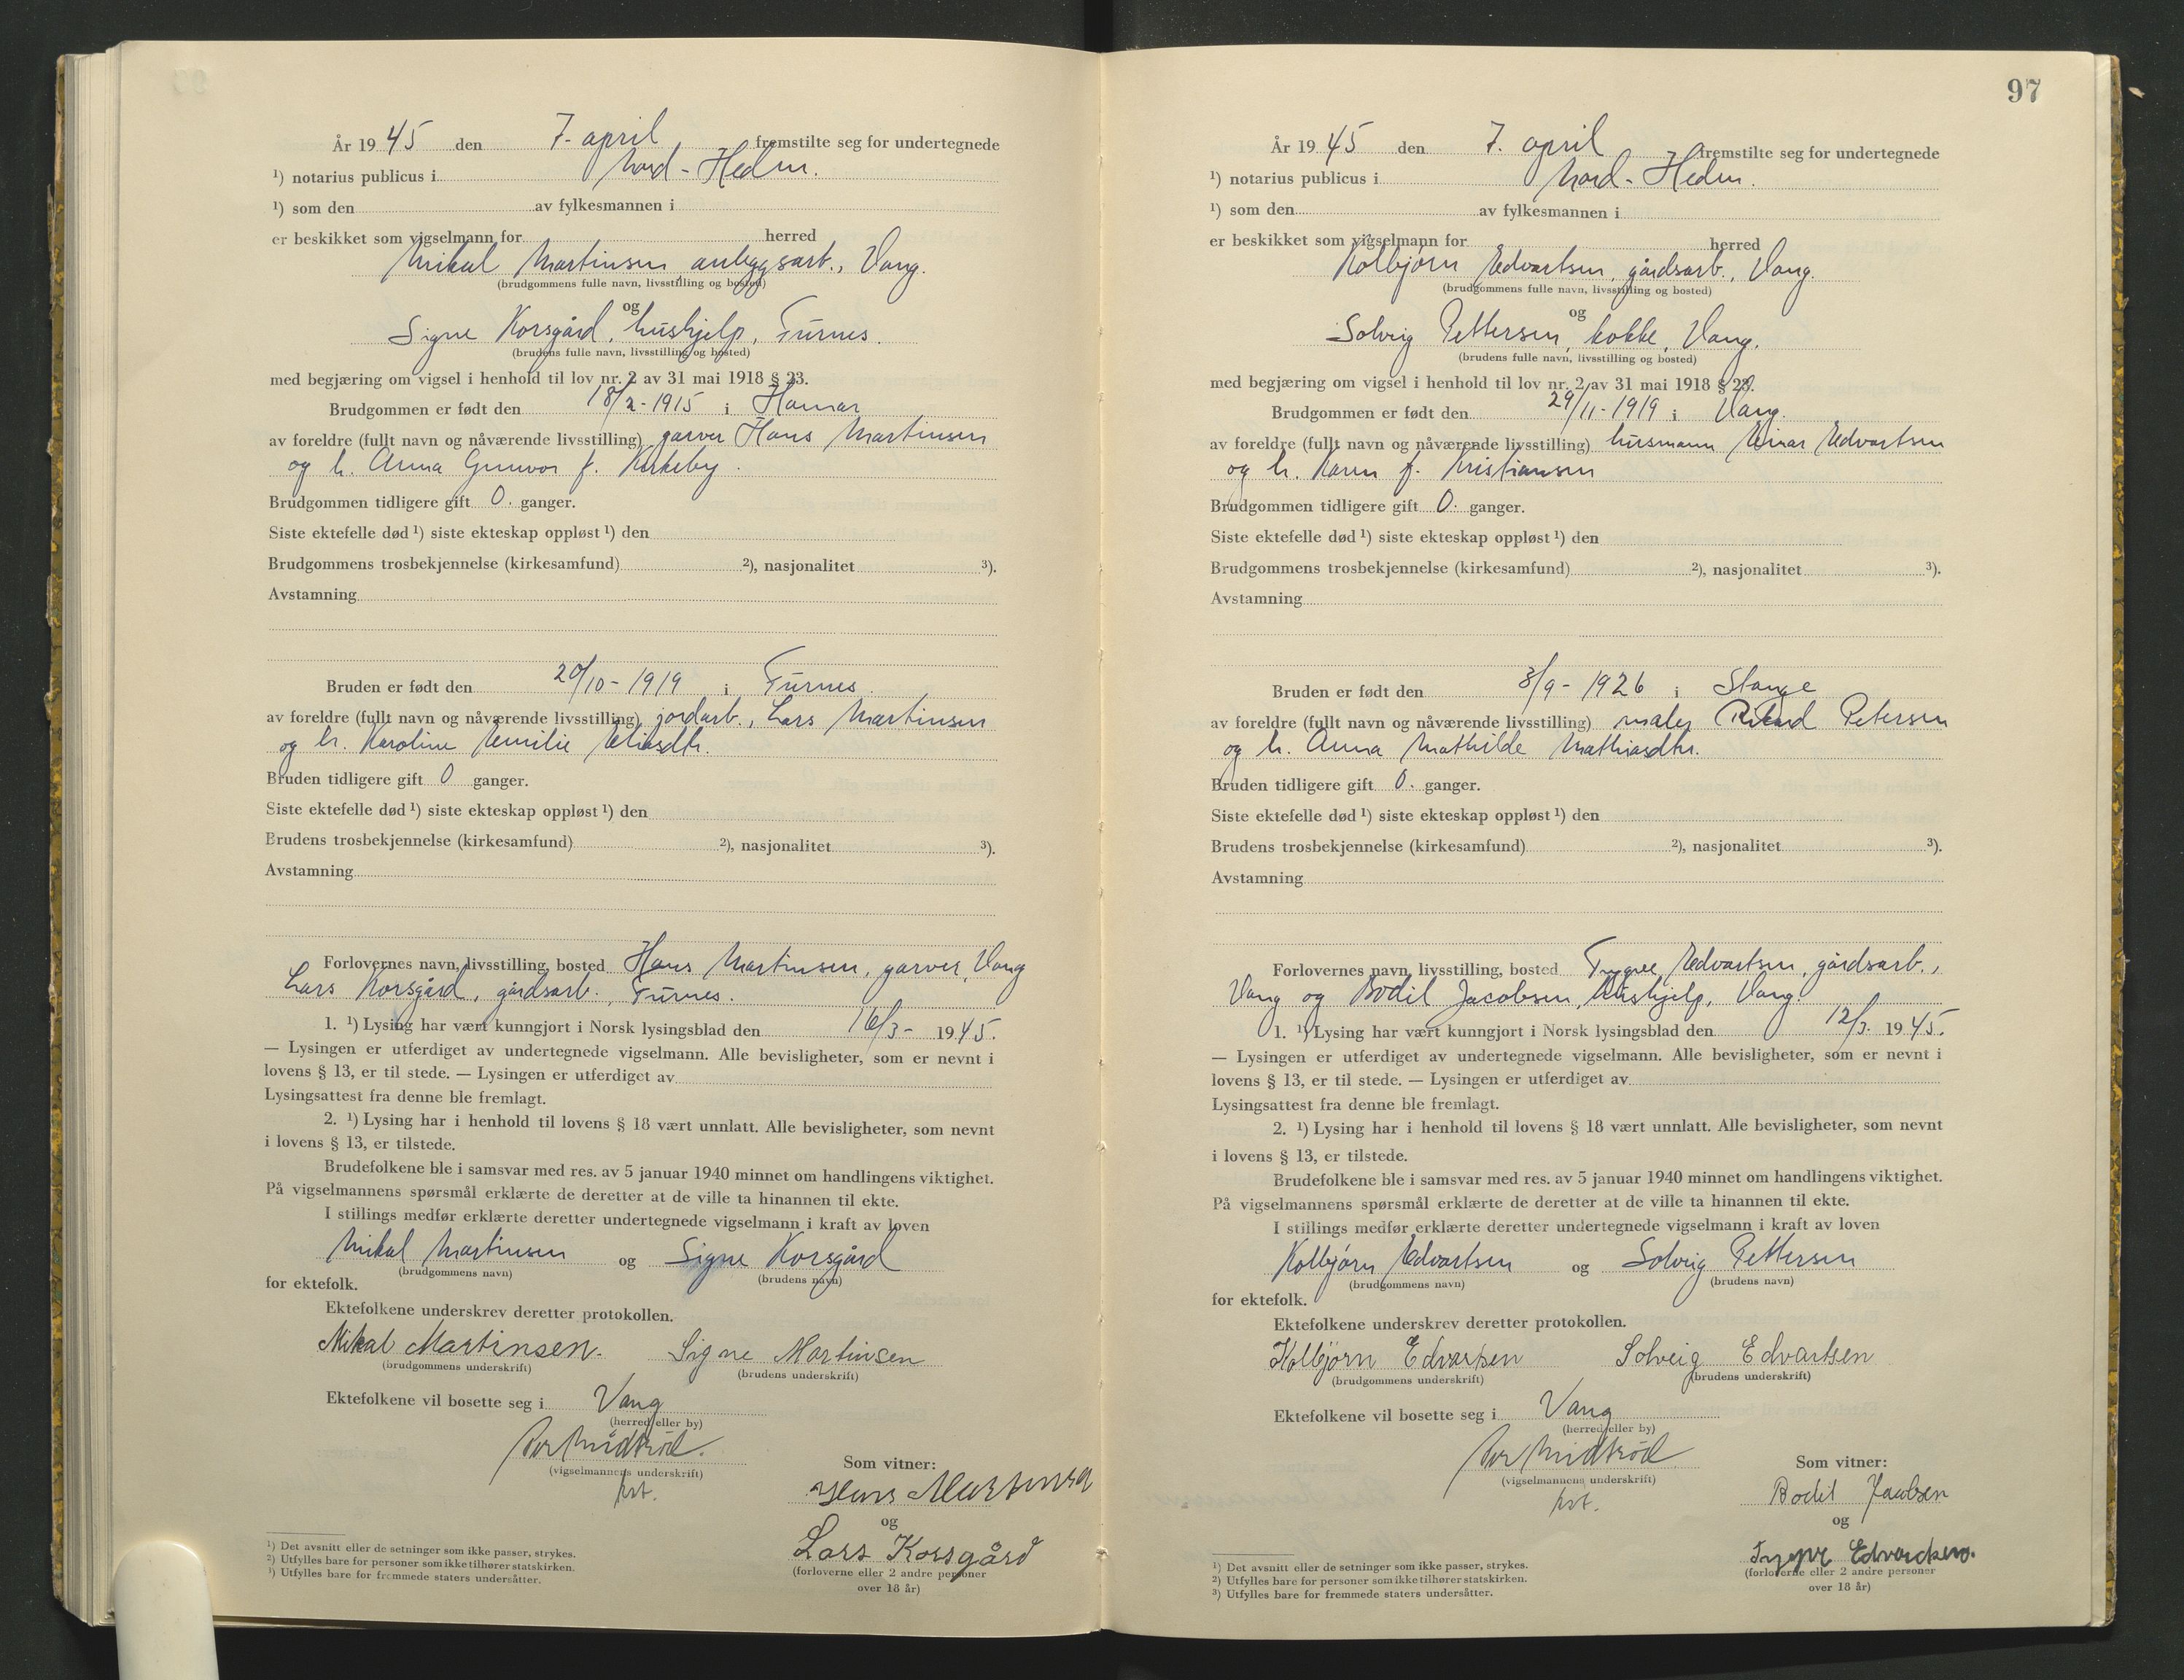 År 1945 den 7. april fremstilte seg for undertegnede
¹) notarius publicus i Nord-Hedm.
¹) som den av fylkesmannen i
er beskikket som vigselmann for herred
Mikal Martinsen, anleggsarb., Vang.
(brudgommens fulle navn, livsstilling og bosted)
og
Signe Korsgård, hushjelp, Furnes.
(brudens fulle navn, livsstilling og bosted)
med begjæring om vigsel i henhold til lov nr. 2 av 31 mai 1918 § 23.
Brudgommen er født den 18/2-1915 i Hamar
av foreldre (fullt navn og nåværende livsstilling) garver Hans Martinsen
og h. Anna Gunvor f. Kirkeby.
Brudgommen tidligere gift 0. ganger.
Siste ektefelle død ¹) siste ekteskap oppløst ¹) den
Brudgommens trosbekjennelse (kirkesamfund) ²), nasjonalitet ³).
Avstamning
Bruden er født den 20/10-1919 i Furnes.
av foreldre (fullt navn og nåværende livsstilling) jordarb., Lars Martinsen
og h. Karoline Emilie Eliasdtr.
Bruden tidligere gift 0 ganger.
Siste ektefelle død ¹) siste ekteskap oppløst ¹) den
Brudens trosbekjennelse (kirkesamfund) ²), nasjonalitet ³).
Avstamning
Forlovernes navn, livsstilling, bosted Hans Martinsen, garver, Vang
Lars Korsgård, gårdsarb., Furnes.
1. ¹) Lysing har vært kunngjort i Norsk lysingsblad den 16/3- 1945.
— Lysingen er utferdiget av undertegnede vigselmann. Alle bevisligheter, som er nevnt i
lovens § 13, er til stede. — Lysingen er utferdiget av
Lysingsattest fra denne ble fremlagt.
2. ¹) Lysing har i henhold til lovens § 18 vært unnlatt. Alle bevisligheter, som nevnt
i lovens § 13, er tilstede.
Brudefolkene ble i samsvar med res. av 5 januar 1940 minnet om handlingens viktighet.
På vigselmannens spørsmål erklærte de deretter at de ville ta hinannen til ekte.
I stillings medfør erklærte deretter undertegnede vigselmann i kraft av loven
Mikal Martinsen og Signe Korsgård
(brudgommens navn) (brudens navn)
for ektefolk.
Ektefolkene underskrev deretter protokollen.
Mikal Martinsen. Signe Martinsen
(brudgommens underskrift) (brudens underskrift)
Ektefolkene vil bosette seg i Vang
(herred eller by)
Per Midtrød.
(vigselmannens underskrift)
kst.
Som vitner:
Hans Martinsen
og
Lars Korsgård
(forloverne eller 2 andre personer
over 18 år)
¹) Det avsnitt eller de setninger som ikke passer, strykes.
²) Utfylles bare for personer som ikke tilhører statskirken.
³) Utfylles bare for fremmede staters undersåtter.
97
År 1945 den 7. april fremstilte seg for undertegnede
¹) notarius publicus i Nord-Hedm.
¹) som den av fylkesmannen i
er beskikket som vigselmann for herred
Kolbjørn Edvartsen, gårdsarb., Vang.
(brudgommens fulle navn, livsstilling og bosted)
og
Solveig Pettersen, kokke, Vang.
(brudens fulle navn, livsstilling og bosted)
med begjæring om vigsel i henhold til lov nr. 2 av 31 mai 1918 § 23.
Brudgommen er født den 29/11-1919 i Vang.
av foreldre (fullt navn og nåværende livsstilling) husmann Einar Edvartsen
og h. Karen f. Kristiansen
Brudgommen tidligere gift 0. ganger.
Siste ektefelle død ¹) siste ekteskap oppløst ¹) den
Brudgommens trosbekjennelse (kirkesamfund) ²), nasjonalitet ³).
Avstamning
Bruden er født den 8/9-1926 i Stange
av foreldre (fullt navn og nåværende livsstilling) maler Rikard Petersen
og h. Anna Mathilde Mathiasdtr.
Bruden tidligere gift 0. ganger.
Siste ektefelle død ¹) siste ekteskap oppløst ¹) den
Brudens trosbekjennelse (kirkesamfund) ²), nasjonalitet ³).
Avstamning
Forlovernes navn, livsstilling, bosted Trygve Edvartsen, gårdsarb.,
Vang og Bodil Jacobsen, hushjelp, Vang.
1. ¹) Lysing har vært kunngjort i Norsk lysingsblad den 12/3. 1945.
— Lysingen er utferdiget av undertegnede vigselmann. Alle bevisligheter, som er nevnt i
lovens § 13, er til stede. — Lysingen er utferdiget av
Lysingsattest fra denne ble fremlagt.
2. ¹) Lysing har i henhold til lovens § 18 vært unnlatt. Alle bevisligheter, som nevnt
i lovens § 13, er tilstede.
Brudefolkene ble i samsvar med res. av 5 januar 1940 minnet om handlingens viktighet.
På vigselmannens spørsmål erklærte de deretter at de ville ta hinannen til ekte.
I stillings medfør erklærte deretter undertegnede vigselmann i kraft av loven
Kolbjørn Edvartsen og Solveig Pettersen
(brudgommens navn) (brudens navn)
for ektefolk.
Ektefolkene underskrev deretter protokollen.
Kolbjørn Edvartsen Solveig Edvartsen
(brudgommens underskrift) (brudens underskrift)
Ektefolkene vil bosette seg i Vang
(herred eller by)
Per Midtrød
(vigselmannens underskrift)
kst.
Som vitner:
Bodil Jacobsen
og
Trygve Edvardsen.
(forloverne eller 2 andre personer
over 18 år)
¹) Det avsnitt eller de setninger som ikke passer, strykes.
²) Utfylles bare for personer som ikke tilhører statskirken.
³) Utfylles bare for fremmede staters undersåtter.